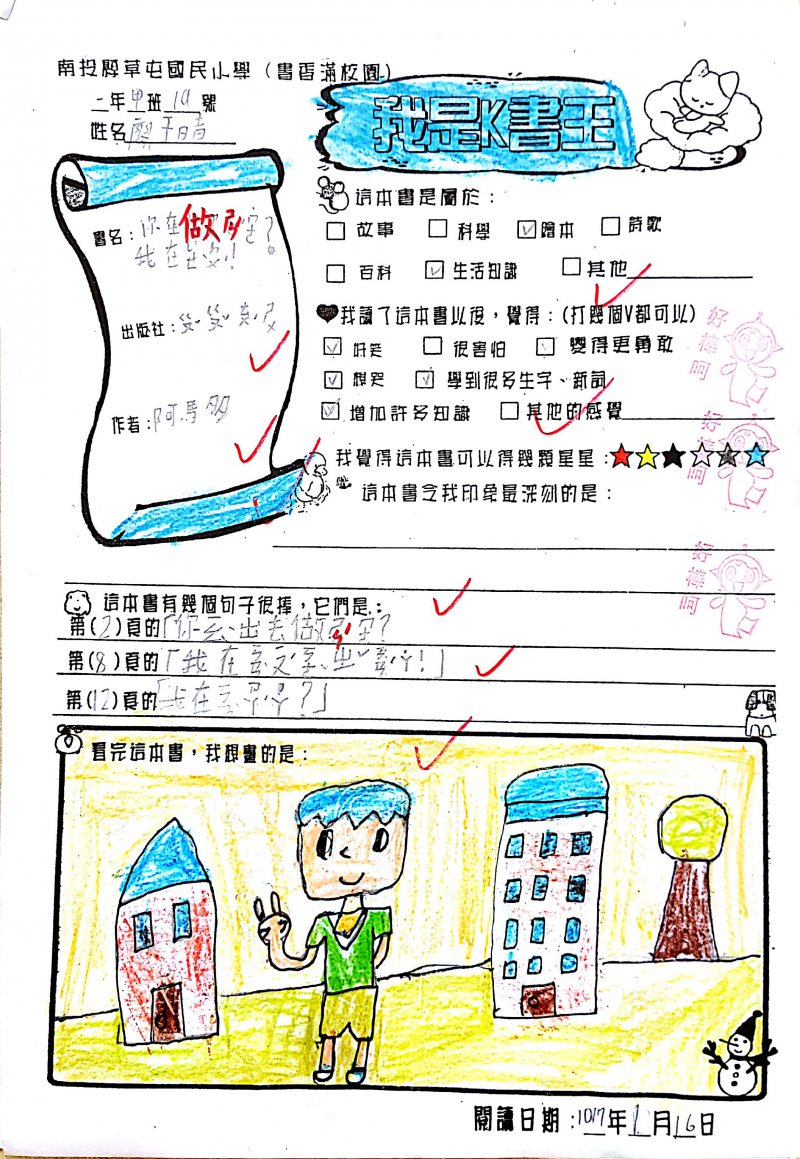 南投縣草屯國民小學（書香滿校園）
二年甲班19號
姓名廖
我是K書王
書名：你在做 ?
我在 !
出版社：
作者：阿馬
這本書是屬於：
□ 故事 □ 科學 ☑ 繪本 □ 詩歌
□ 百科 ☑ 生活知識 □ 其他
♥我讀了這本書以後，覺得：(打幾個V都可以)
☑ 好笑 □ 很害怕 ☑ 變得更勇敢
☑ 想哭 ☑ 學到很多生字、新詞
☑ 增加許多知識 □ 其他的感覺
我覺得這本書可以得幾顆星星：★★★★★★
這本書令我印象最深刻的是：
這本書有幾個句子很棒，它們是：
第(2)頁的「你 出去做 ?
第(8)頁的「我在 !」
第(12)頁的「我在 ?」
看完這本書，我想畫的是：
閱讀日期：107年 月16日
好棒呵
好棒呵
好棒呵